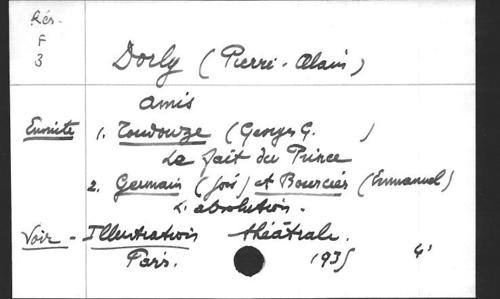 Rés.
F
3
Dorly (Pierre-Alain)
Amis
Ensuite 1. Toudouze (Georges G. )
Le fait du Prince
2. Germain (José) et Bourcier (Emmanuel)
L'absolution.
Voir - Illustration théâtrale.
Paris. 1935 4°